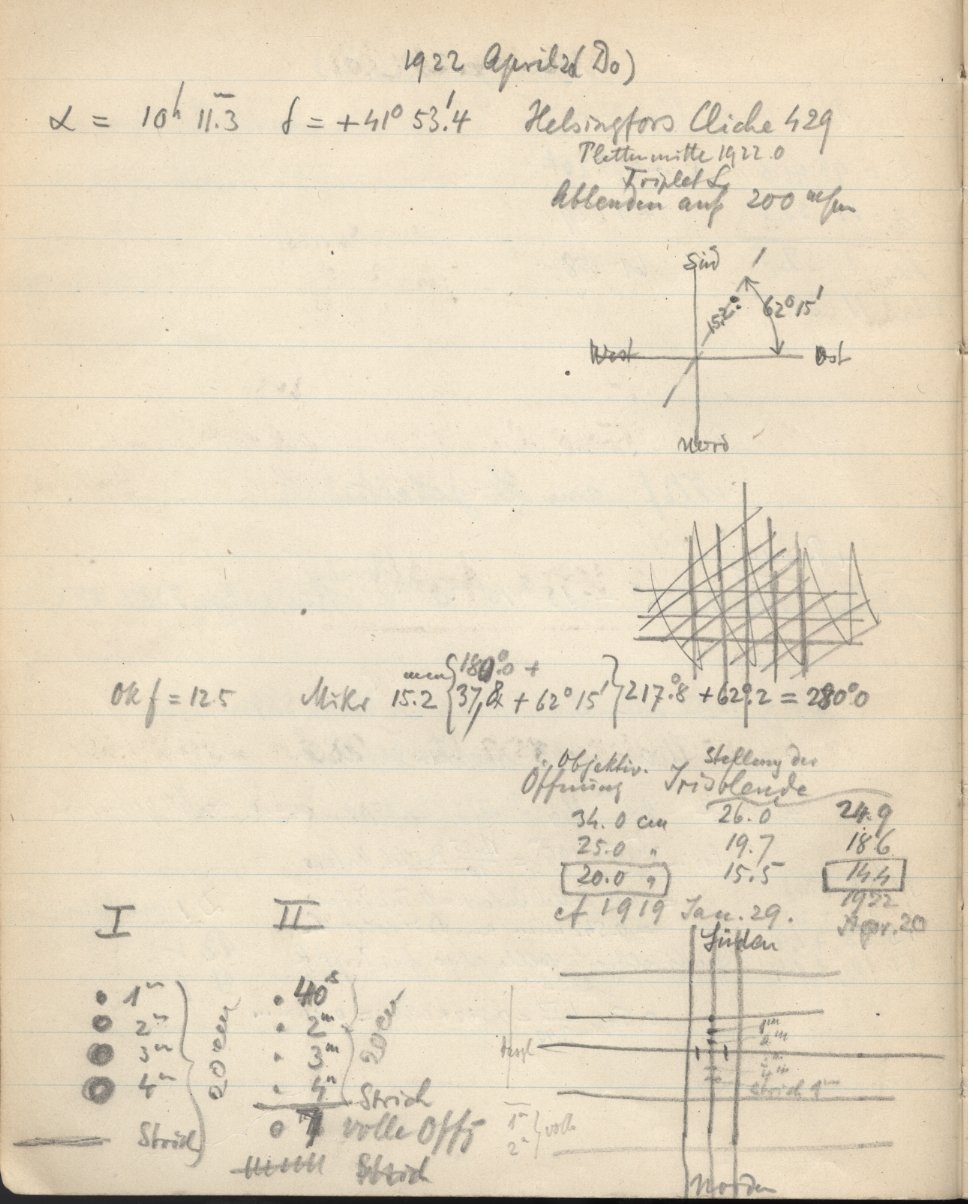 1922 April 20 (Do)
α = 10ʰ 11ᵐ.3 δ = +41° 53'.4 Helsingfors Cliche 429
Plattenmitte 1922.0
Triplet
Abblenden auf 200
Süd
15.2
62° 15'
West Ost
Nord
180°.0 +
Ok f = 12.5 Mikr 15.2 {37,8 + 62° 15'} 217°.8 + 62°.2 = 280°.0
Objektiv- Stellung der
Öffnung Irisblende
34.0 cm 26.0 24.9
25.0 " 19.7 18.6
20.0 " 15.5 14.4
cf 1919 Jan. 29. 1922
Apr. 20
I II
Süden
1ᵐ 40ˢ
2ᵐ 2ᵐ
3ᵐ 3ᵐ
4ᵐ 4ᵐ
20 cm 20 cm
1ᵐ
2ᵐ
Strich 1ᵐ
Strich
Strich 1 volle Öffg
Strich
1ᵐ
2ᵐ } voll
Norden